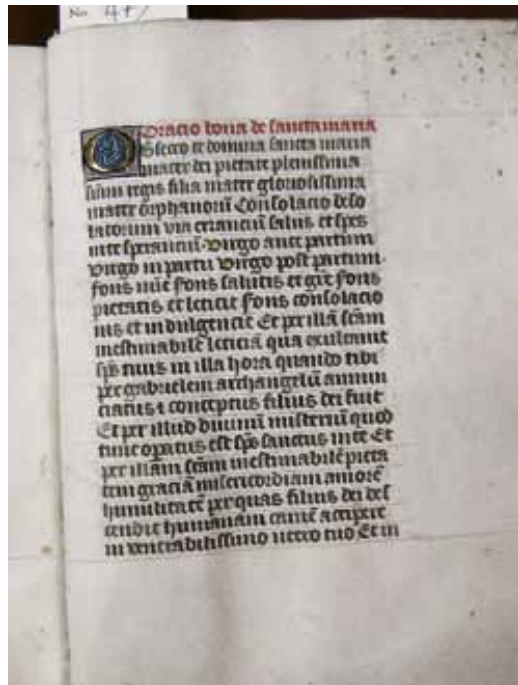 No 47
Oracio bona de sancta maria
Obsecro te domina sancta maria
mater dei pietate plenissima
sũmi regis filia mater gloriosissima
mater orphanorũ Consolacio deso
latorum via erranciũ salus et spes
in te speranciũ. Virgo ante partum
virgo in partu virgo post partum.
fons mĩe fons salutis et grẽ fons
pietatis et leticie fons consolacio
nis et indulgencie Et per illã scãm
inestimabilẽ leticiã qua exultauit
sp̃s tuus in illa hora quando tibi
per gabrielem archangelũ annun
ciatus ⁊ conceptus filius dei fuit
Et per illud diuinũ misteriũ quod
tunc operatus est sp̃s sanctus in te Et
per illam scãm inestimabilẽ pieta
tem graciã misericordiam amorẽ
humilitatẽ per quas filius dei des
cendit humanam carnẽ accipere
in venerabilissimo utero tuo Et in